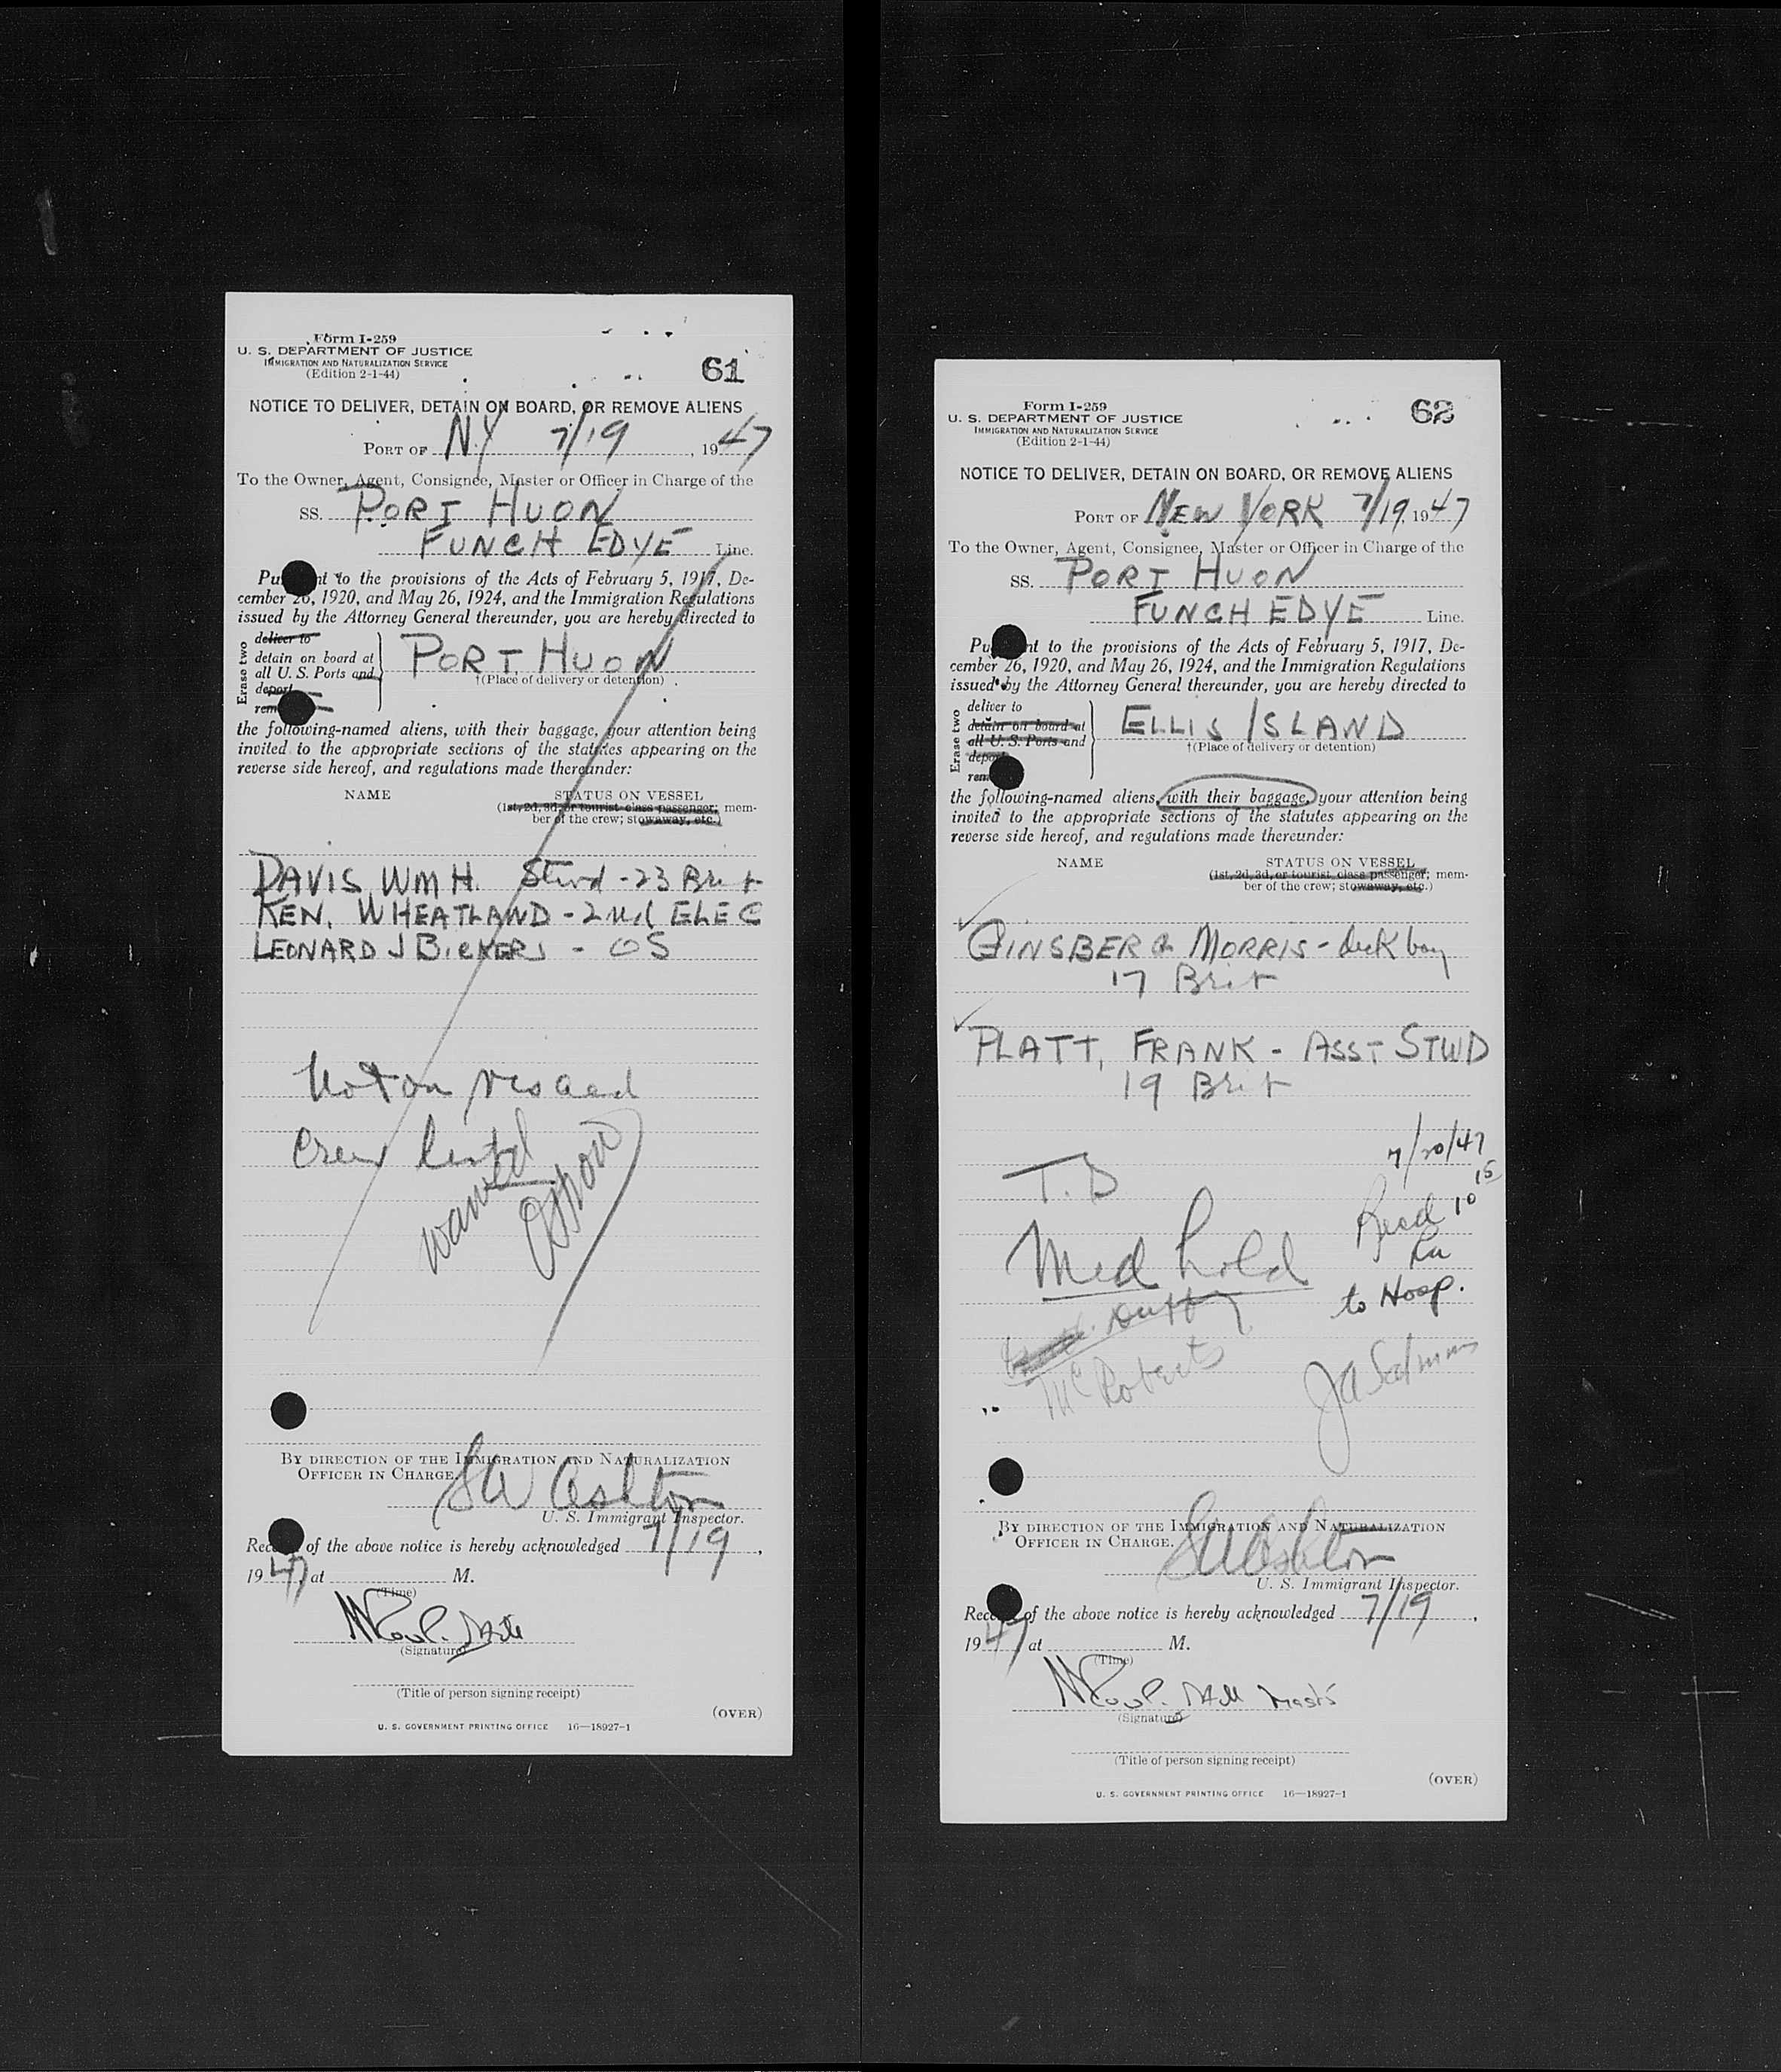 Form I-259
U. S. DEPARTMENT OF JUSTICE
IMMIGRATION AND NATURALIZATION SERVICE
(Edition 2-1-44)
61
NOTICE TO DELIVER, DETAIN ON BOARD, OR REMOVE ALIENS
PORT OF N.Y 7/19, 1947
To the Owner, Agent, Consignee, Master or Officer in Charge of the
SS. PORT HUON
FUNCH EDYE Line.
Pu nt to the provisions of the Acts of February 5, 1917, De-
cember 26, 1920, and May 26, 1924, and the Immigration Regulations
issued by the Attorney General thereunder, you are hereby directed to
Erase two
deliver to
detain on board at
all U. S. Ports and
deport
rem
PORT HUON
†(Place of delivery or detention)
the following-named aliens, with their baggage, your attention being
invited to the appropriate sections of the statutes appearing on the
reverse side hereof, and regulations made thereunder:
NAME STATUS ON VESSEL
(1st, 2d, 3d, or tourist class passenger; mem-
ber of the crew; stowaway, etc.)
DAVIS WM H. Stwd - 23 Brit
KEN. WHEATLAND - 2nd ELEC
LEONARD J BICKERS - OS
Not on visaed
Crew list
waived
BY DIRECTION OF THE IMMIGRATION AND NATURALIZATION
OFFICER IN CHARGE.
SW Ashton
U. S. Immigrant Inspector.
Rece of the above notice is hereby acknowledged 7/19,
1947, at M.
(Time)
(Signature)
(Title of person signing receipt)
(OVER)
U. S. GOVERNMENT PRINTING OFFICE 16—18927-1
Form I-259
U. S. DEPARTMENT OF JUSTICE
IMMIGRATION AND NATURALIZATION SERVICE
(Edition 2-1-44)
62
NOTICE TO DELIVER, DETAIN ON BOARD, OR REMOVE ALIENS
PORT OF NEW YORK 7/19, 1947
To the Owner, Agent, Consignee, Master or Officer in Charge of the
SS. PORT HUON
FUNCH EDYE Line.
Pu nt to the provisions of the Acts of February 5, 1917, De-
cember 26, 1920, and May 26, 1924, and the Immigration Regulations
issued by the Attorney General thereunder, you are hereby directed to
Erase two
deliver to
detain on board at
all U. S. Ports and
depor
rem
ELLIS ISLAND
†(Place of delivery or detention)
the following-named aliens, with their baggage, your attention being
invited to the appropriate sections of the statutes appearing on the
reverse side hereof, and regulations made thereunder:
NAME STATUS ON VESSEL
(1st, 2d, 3d, or tourist class passenger; mem-
ber of the crew; stowaway, etc.)
GINSBERG MORRIS - deck boy
17 Brit
PLATT, FRANK - ASST STWD
19 Brit
7/20/47
T.D
Recd 10 15
Med hold
to Hosp.
Duffy
McRoberts
BY DIRECTION OF THE IMMIGRATION AND NATURALIZATION
OFFICER IN CHARGE.
SW Ashton
U. S. Immigrant Inspector.
Rece of the above notice is hereby acknowledged 7/19,
1947, at M.
(Time)
(Signature)
(Title of person signing receipt)
(OVER)
U. S. GOVERNMENT PRINTING OFFICE 16—18927-1